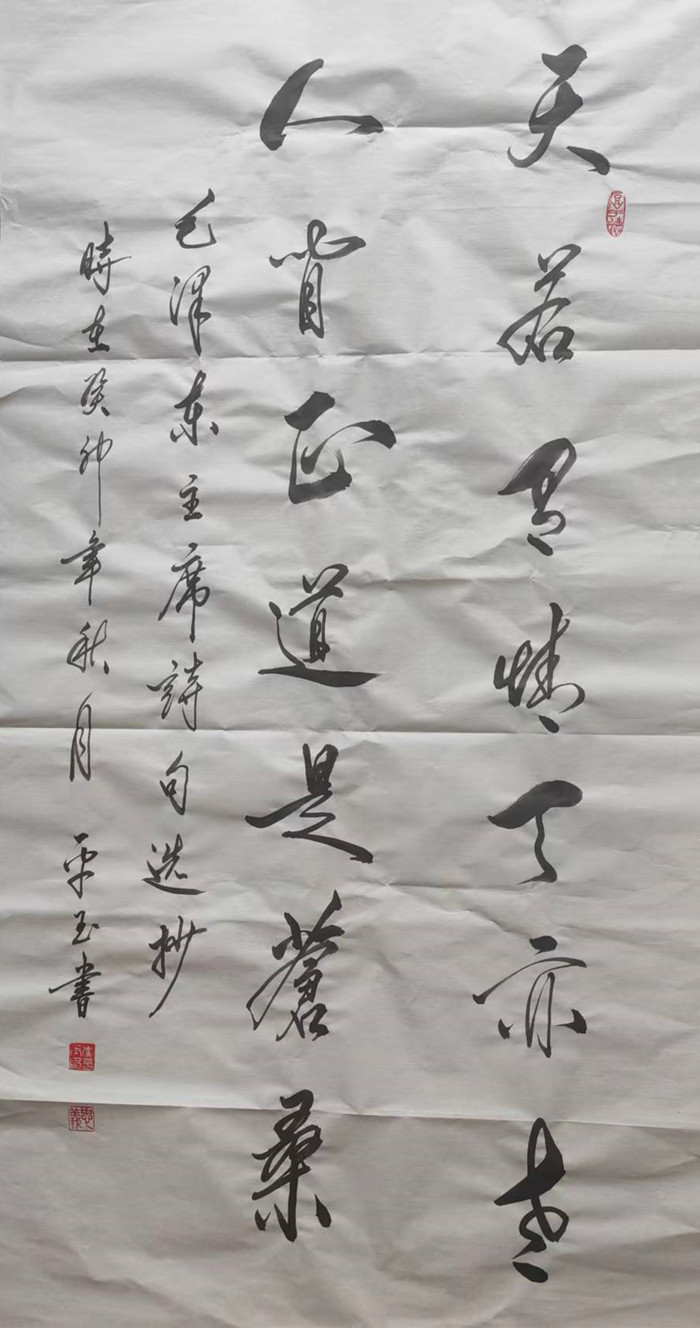 天若有情天亦老
人間正道是蒼桑
毛澤東主席詩句選抄
時在癸卯年秋月 平玉書